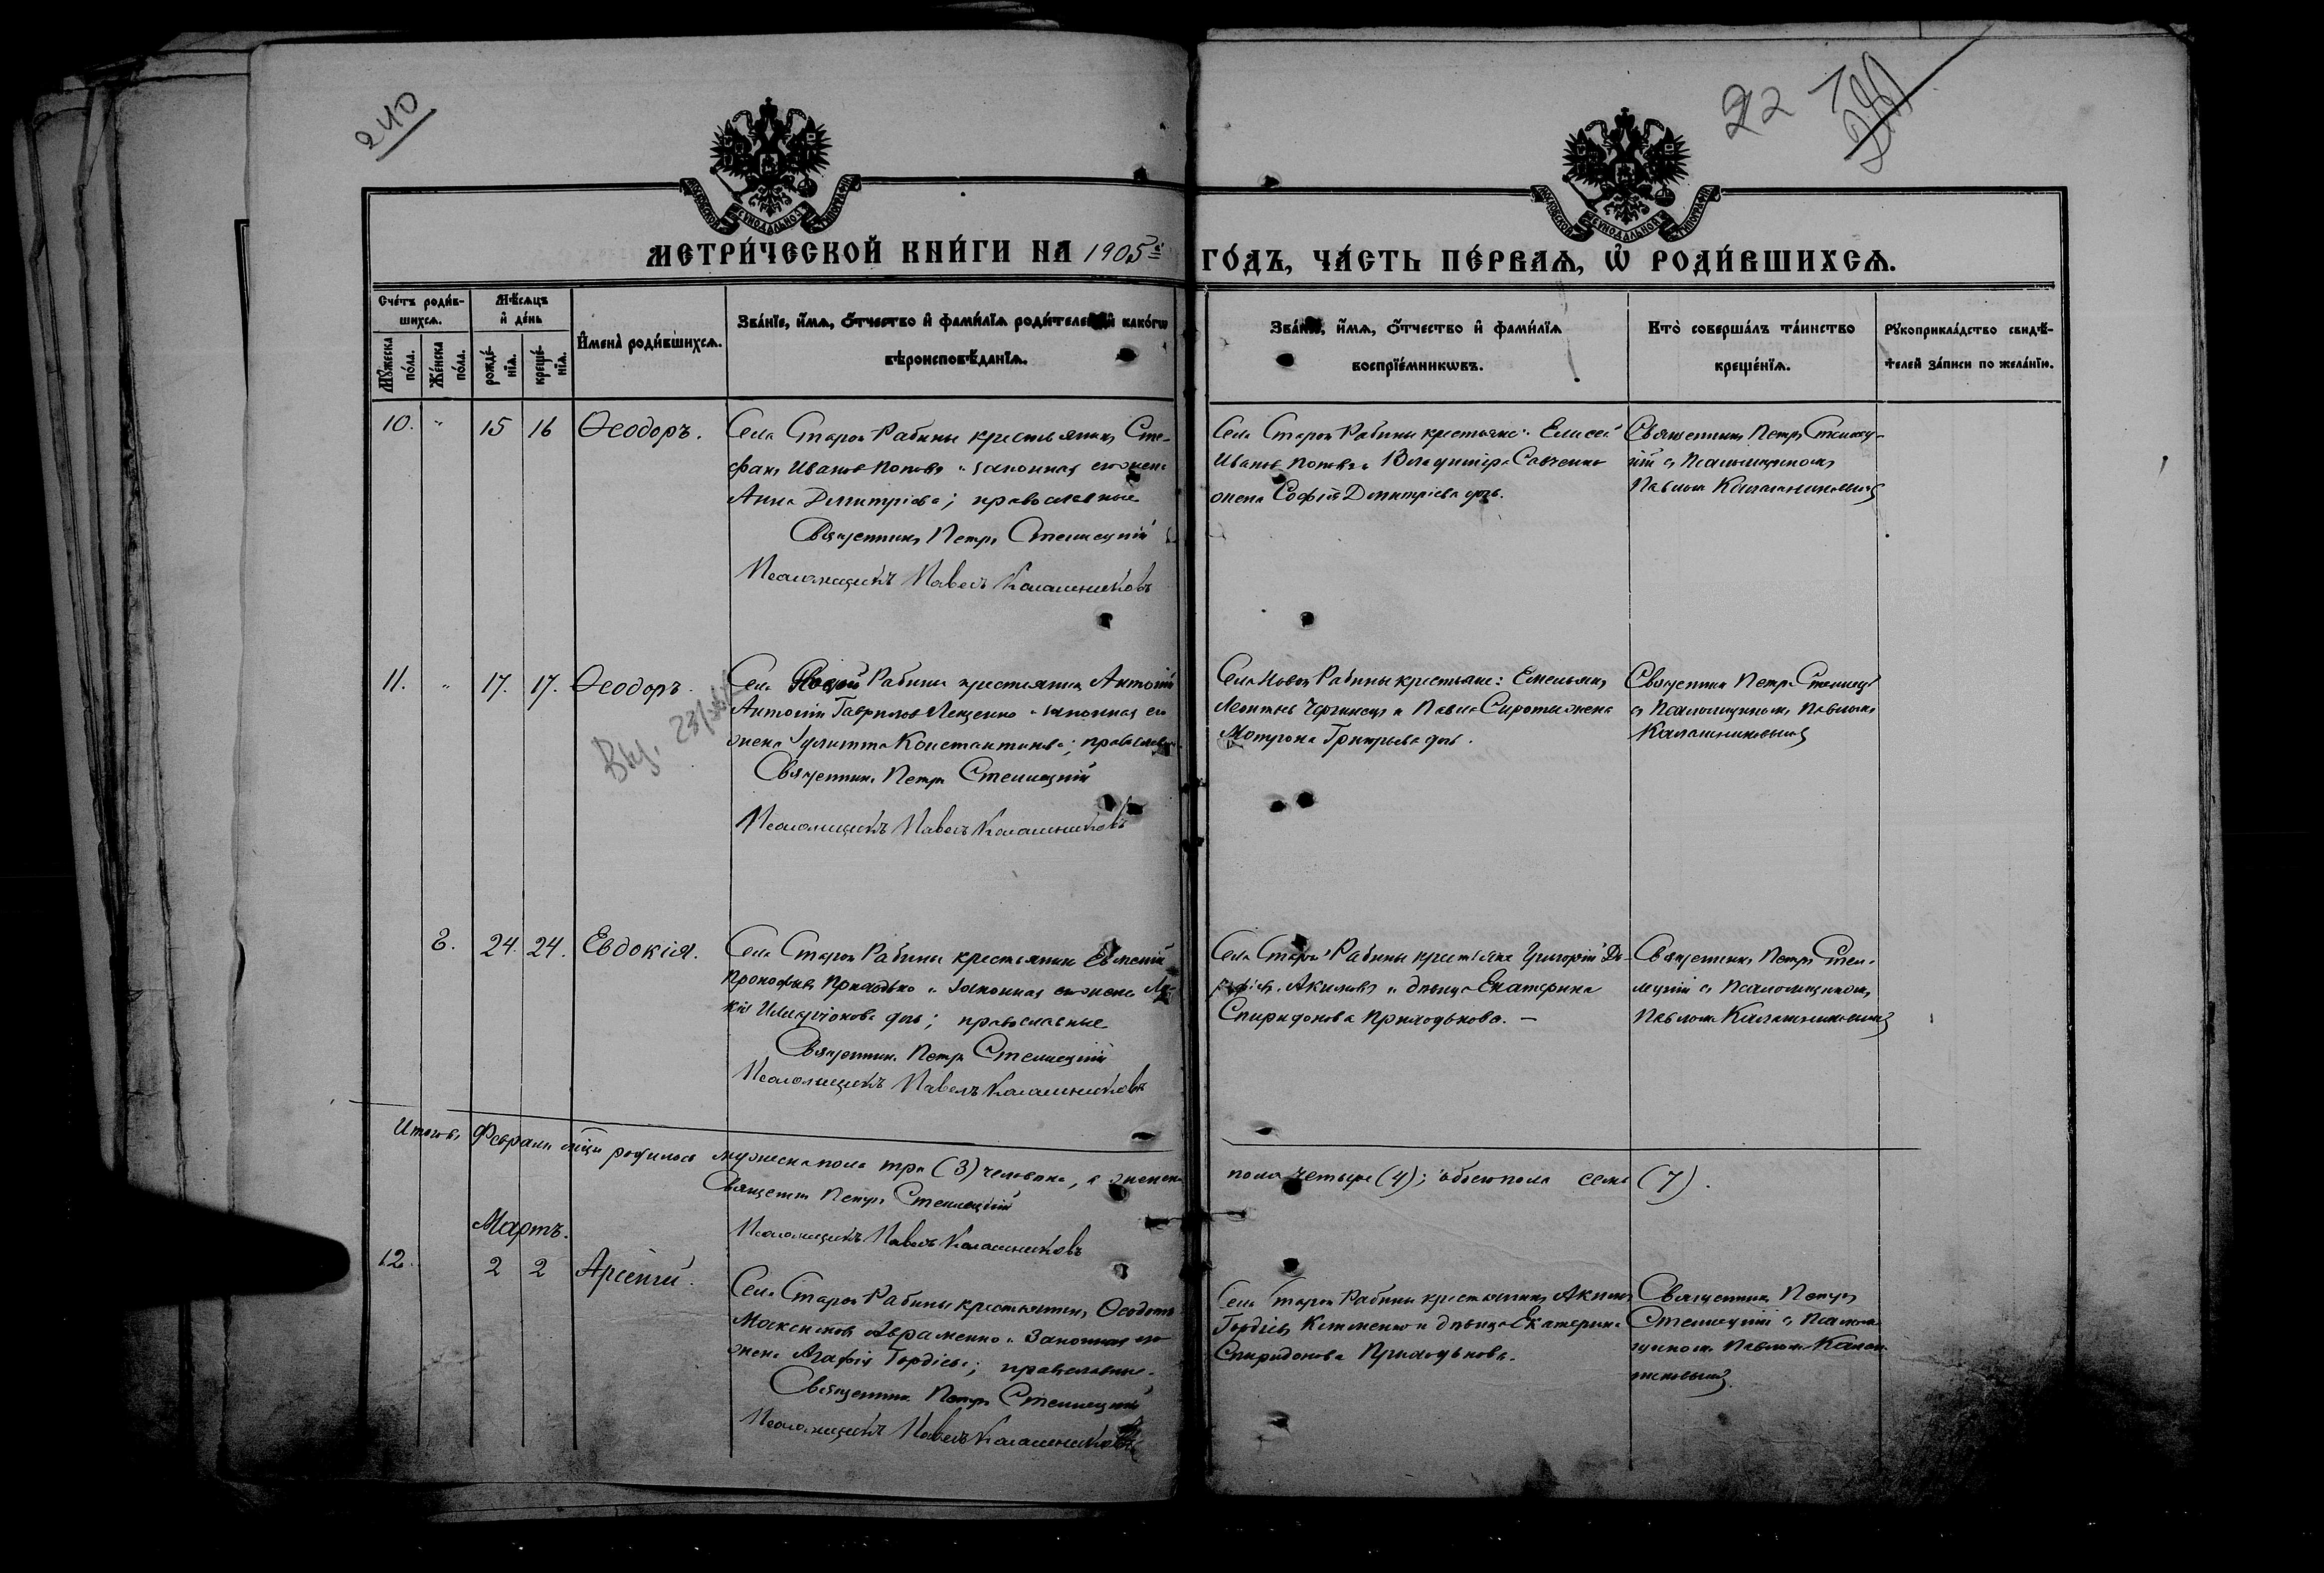 240
22
МЕТРИ́ЧЕСКОЙ КНИ́ГИ НА 1905й
ГО́ДЪ, ЧА́СТЬ ПЕ́РВАѦ, Ѡ҆ РОДИ́ВШИХСѦ.
Сче́тъ роди́в-
шихсѧ.
Мѣ́сѧцъ
и҆ де́нь
Мꙋ́жеска по́ла.
Же́нска по́ла.
рожде́-
нїѧ.
креще́-
нїѧ.
И҆мена̀ роди́вшихсѧ.
Зва́нїе, и҆́мѧ, ѻ҆́тчество и҆ фами́лїѧ роди́телей и҆ како́гѡ
вѣроисповѣ́данїѧ.
Зва́нїе, и҆́мѧ, ѻ҆́тчество и҆ фами́лїѧ
воспрїе́мникѡвъ.
Кто̀ соверша́лъ та́инство
креще́нїѧ.
Рꙋкоприкла́дство свидѣ́-
телей за́писи по жела́нїю.
10. " 15 16 Ѳеодоръ.
Села Старой Рабины крестьянинъ Сте-
фанъ Ивановъ Поповъ и законная его жена
Анна Димитріева; православные
Священникъ Петръ Стеллецкій
Псаломщикъ Павелъ Калашниковъ
Села Старой Рабины крестьяне: Елисей
Ивановъ Поповъ и Владимира Савченко
жена Софія Димитріева дочь.
Священникъ Петръ Стеллец-
кій съ Псаломщикомъ
Павломъ Калашниковымъ
11. " 17. 17. Ѳеодоръ.
Села Новой Рабины крестьянинъ Антоній
Антоній Гавриловъ Лещенко и законная его
жена Іулитта Константинова; православные.
Священникъ Петръ Стеллецкій
Псаломщикъ Павелъ Калашниковъ
Села Новой Рабины крестьяне: Емельянъ
Леонтьевъ и Павла Сироты жена
Мотрона Григорьева дочь.
Священникъ Петръ Стеллецкій
съ Псаломщикомъ Павломъ
Калашниковымъ
3. 24. 24. Евдокія.
Села Старой Рабины крестьянинъ Евменій
Прокофьевъ Приходько и законная его жена
дочь; православные
Священникъ Петръ Стеллецкій
Псаломщикъ Павелъ Калашниковъ
Села Старой Рабины крестьяне Григорій
Акимовъ и дѣвица Екатерина
Спиридонова Приходькова. —
Священникъ Петръ Стел-
лецкій съ Псаломщикомъ
Павломъ Калашниковымъ
Итого въ Февралѣ мѣсяцѣ родилось мужеска пола три (3) человѣка, а женска
пола четыре (4); обоего пола семь (7).
Священникъ Петръ Стеллецкій
Псаломщикъ Павелъ Калашниковъ
Мартъ.
12. 2 2 Арсеній.
Села Старой Рабины крестьянинъ Ѳеодотъ
Максимовъ Авраменко и законная его
жена Агафія Гордіева; православные.
Священникъ Петръ Стеллецкій
Псаломщикъ Павелъ Калашниковъ
Села Старой Рабины крестьянинъ Акимъ
Гордіевъ и дѣвица Екатерина
Спиридонова Приходькова.
Священникъ Петръ
Стеллецкій съ Псалом-
щикомъ Павломъ Калаш-
никовымъ